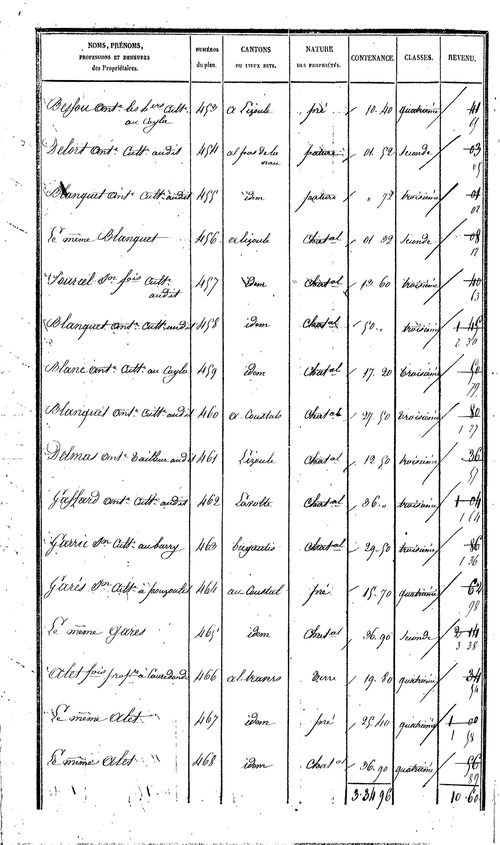 NOMS, PRÉNOMS, PROFESSIONS ET DEMEURES des Propriétaires. NUMÉROS du plan. CANTONS OU LIEUX DITS. NATURE DES PROPRIÉTÉS. CONTENANCE. CLASSES. REVENU.
Bessou ant.e les h.ers Cult.r au Cayla 453 a Lizoule pré 10.40 quatrième 41
Delort ant.e Cult.r audit 454 al pas de la nau pature 01.52 seconde 03
05
Blanquet ant.e Cult.r audit 455 idem pature " 72 troisième 01
02
Le même Blanquet 456 a lizoule Chat.al 01 32 seconde 08
12
fois Cult.r audit 457 Idem Chat.al 13 60 troisième 40
13
Blanquet ant.e Cult.r audit 458 idem Chat.al 50 " troisième 1 45
2 30
Blanc ant.e Cult.r au Cayla 459 idem Chat.al 17.20 troisième 50
79
Blanquet ant.e Cult.r audit 460 a Coustals Chat.al 27.50 troisième 80
1 27
Delmas ant.e tailleur audit 461 Lizoule Chat.al 12 50 troisième 36
57
Gaffard ant.e Cult.r audit 462 Lavolte Chat.al 36 " troisième 1 04
1 64
Garric Cult.r au barry 463 Chat.al 29.50 troisième 86
1 36
Garés Cult.r à pouzoulet 464 au Coustal pré 15.70 quatrième 62
98
Le même Gares 465 idem Chat.al 36.90 seconde 2 14
3 38
Alet fois prop.re à 466 al travers terre 19.80 quatrième 34
54
Le même Alet 467 idem pré 25.40 quatrième 1 00
1 58
Le même Alet 468 idem Chat.al 36.90 quatrième 56
89
3.34 96 10.60